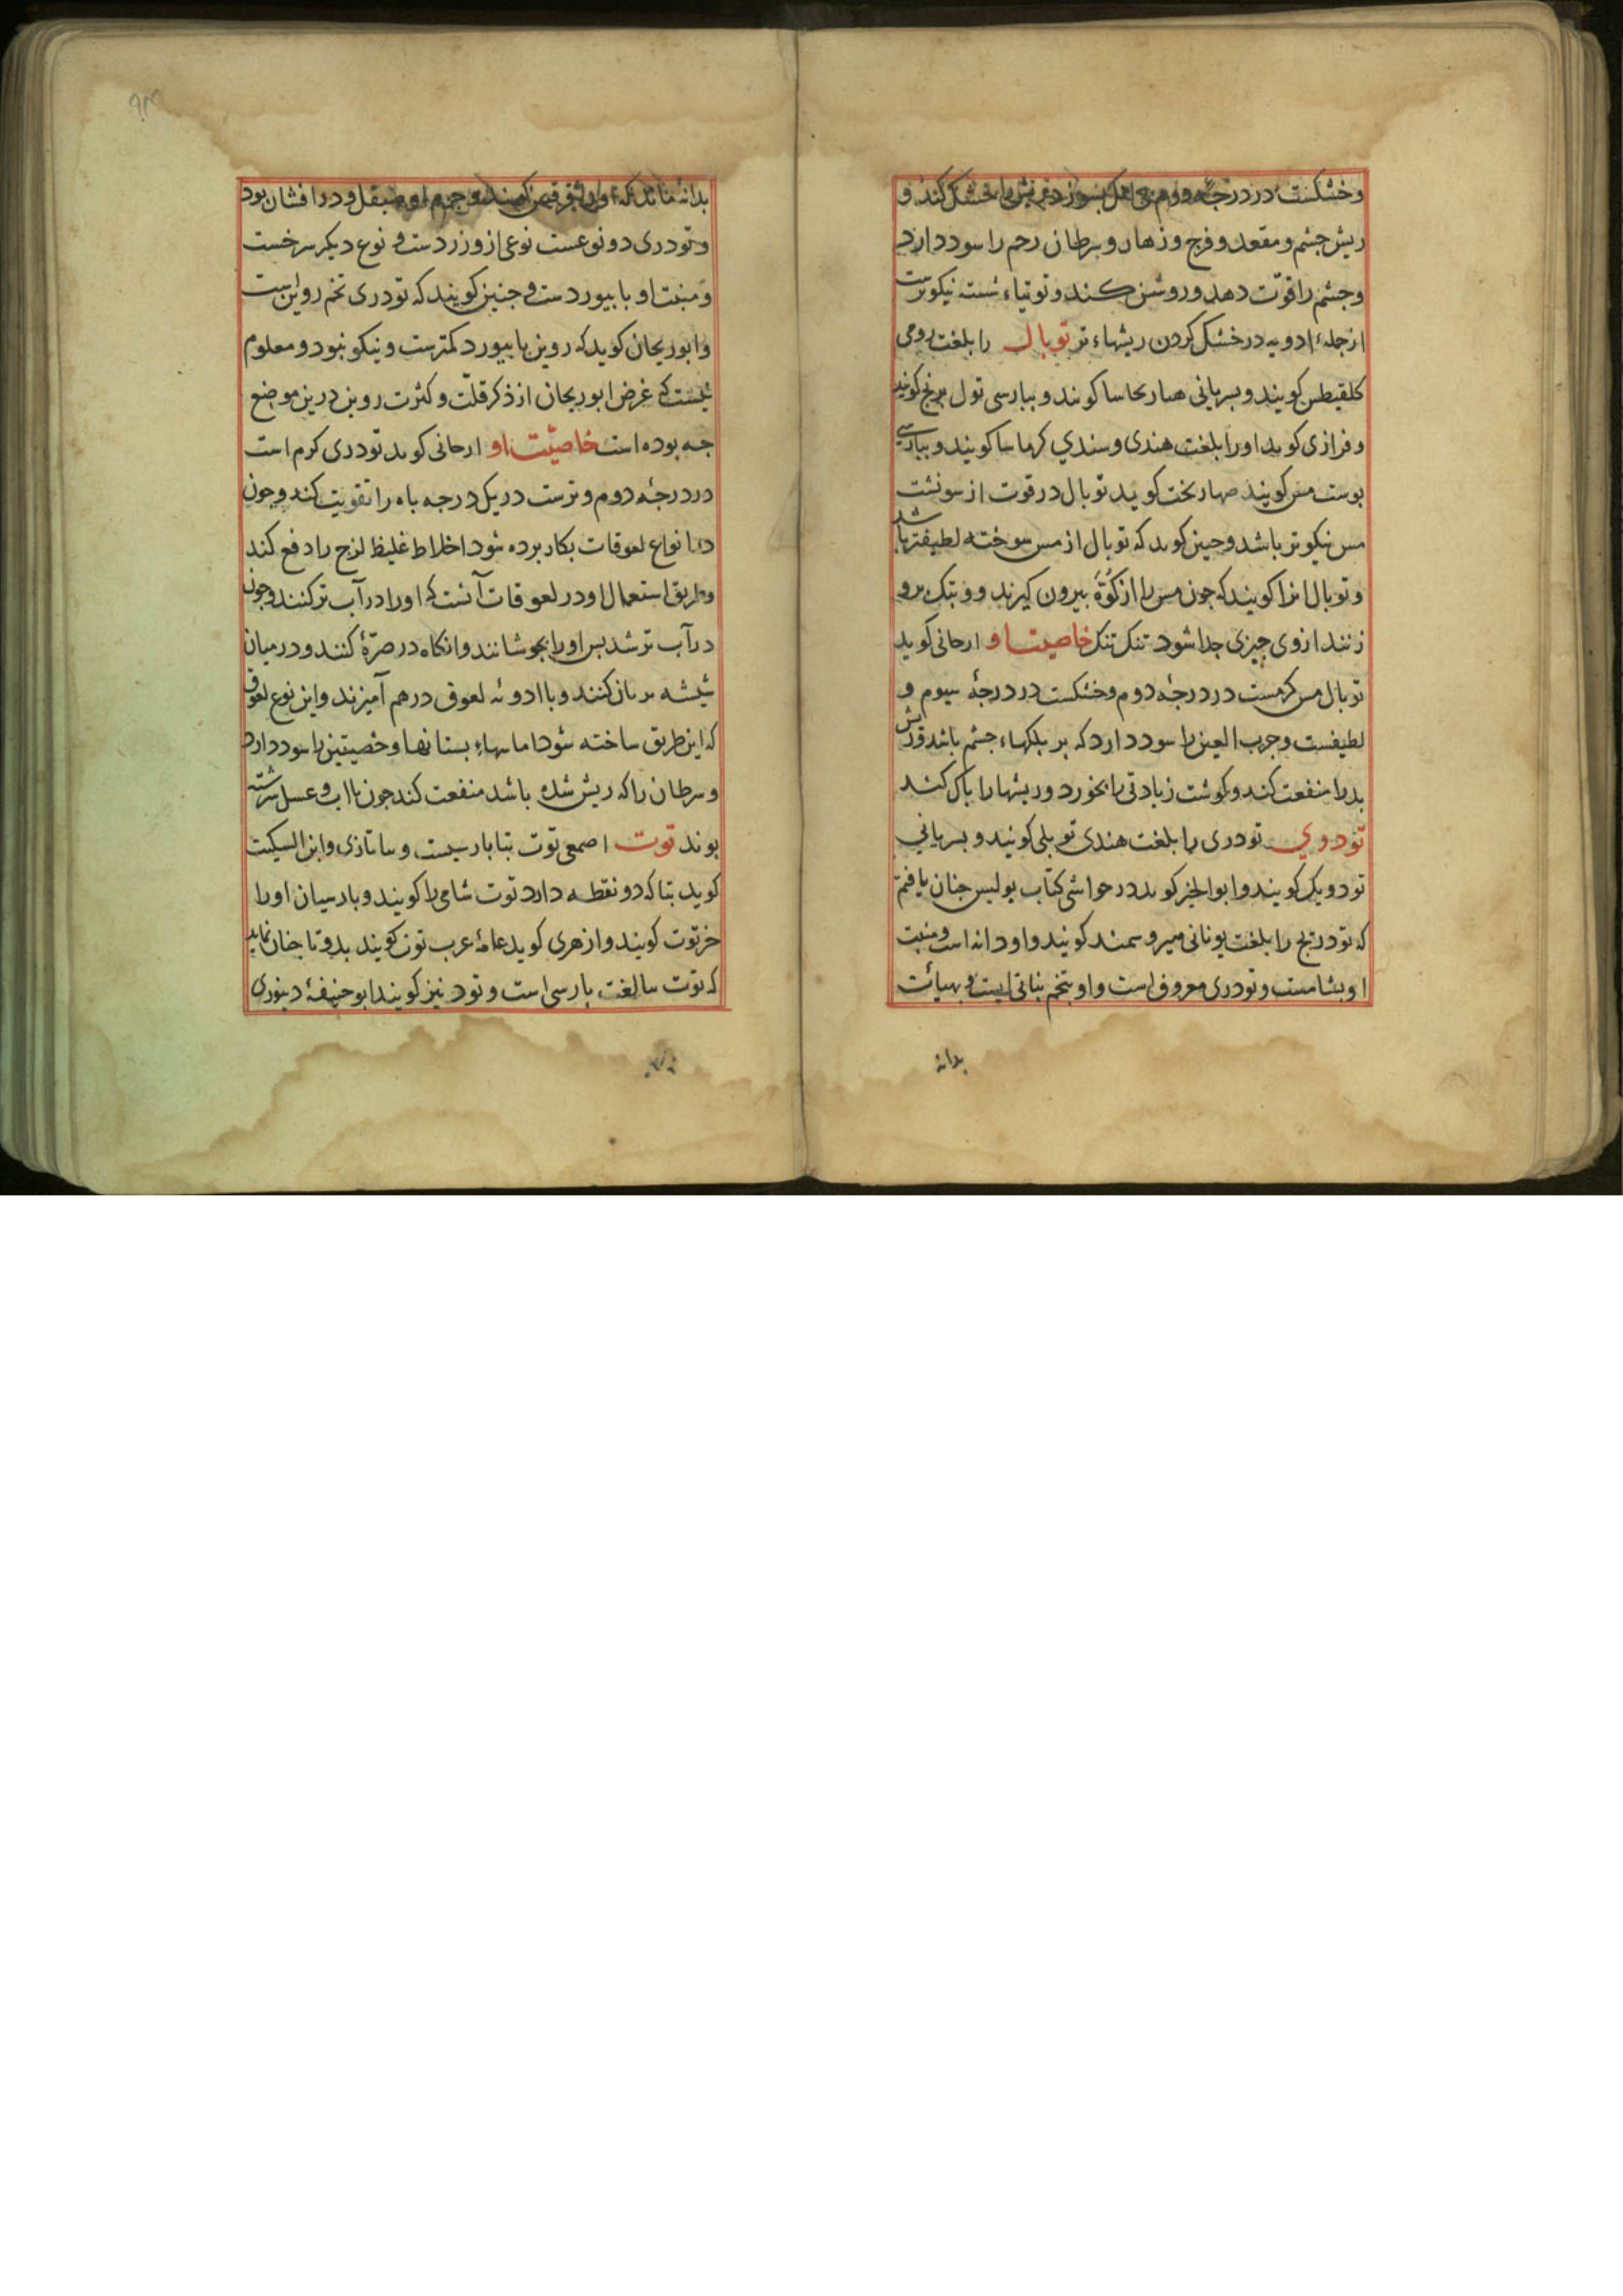 وخشکست در درجه دوم کند و
ریش جشم و مقعد و فرج و زهار و سرطان رحم را سود دارد
وجشم را قوّت دهد و روشن کند و توتیاء شسته نیکوترست
ازجملهٔ ادویه در خشک کردن ریشهاء تر توبال را بلغت رومی
کلقیطس کویند و بسریانی کویند و ببارسی تول کویند
و فرازی کوید اورا بلغت هندی و سندی کویند و ببارسی
بوست مس کویند کوید توبال در قوت از
مس نیکوتر باشد و جنین کوید که توبال از مس سوخته لطیفتر باشد
و توبال انرا کویند که جون مس را از کوّهٔ بیرون کیرند و بتک برو
زنند از وی جیزی جدا شود تنک تنک خاصیت او ارجانی کوید
توبال مس کرمست در درجهٔ دوم و خشکست در درجهٔ سیوم و
لطیفست و جرب العین را سود دارد که بر بلکهاء جشم باشد و ریش
بد را منفعت کند و کوشت زیادتی را بخورد و ریشها را باک کند
تودری تودری را بلغت هندی توبلی کویند و بسریانی
تودویک کویند و ابوالخیر کوید در حواشی کتاب بولیس جنان یافتم
که تودریج را بلغت یونانی کویند و او دانه است و منبت
او بشامست و تودری معروف است و او تخم نباتی است و بهیأت
بدانهٔ
بدانهٔ ماند که بود
و تودری دو نوعست نوعی ازو زردست و نوع دیکر سرخست
و منبت او بابیوردست و جنین کویند که تودری تخم
و ابوریحان کوید که بابیورد کمترست و نیکو نبود و معلوم
نیست که غرض ابوریحان از ذکر قلّت و کثرت درین موضع
جه بوده است خاصیّت او ارجانی کوید تودری کرم است
در درجهٔ دوم و ترست در یک درجه باه را تقویت کند و جون
در انواع لعوقات بکار برده شود اخلاط غلیظ لزج را دفع کند
و طریق استعمال او در لعوقات آنست که اورا در آب تر کنند و جون
در آب تر شد بس اورا بجوشانند و انکاه در صرّهٔ کنند و در میان
کنند و با ادویهٔ لعوق در هم آمیزند و این نوع لعوق
که این طریق ساخته شود اماسهاء بستانها و خصیتین را سود دارد
و سرطان را که ریش شده باشد منفعت کند جون با آب و عسل سرشته
بوند توت اصمعی توت بتا بارسیست و بثا تازی و ابن السکیت
کوید بتا که دو نقطه دارد توت شامی را کویند و بارسیان اورا
خرتوت کویند و ازهری کوید عامهٔ عرب توت کویند بدو تا جنان نماید
که توت بتا لغت بارسی است و تود نیز کویند ابو حنیفهٔ دینوری